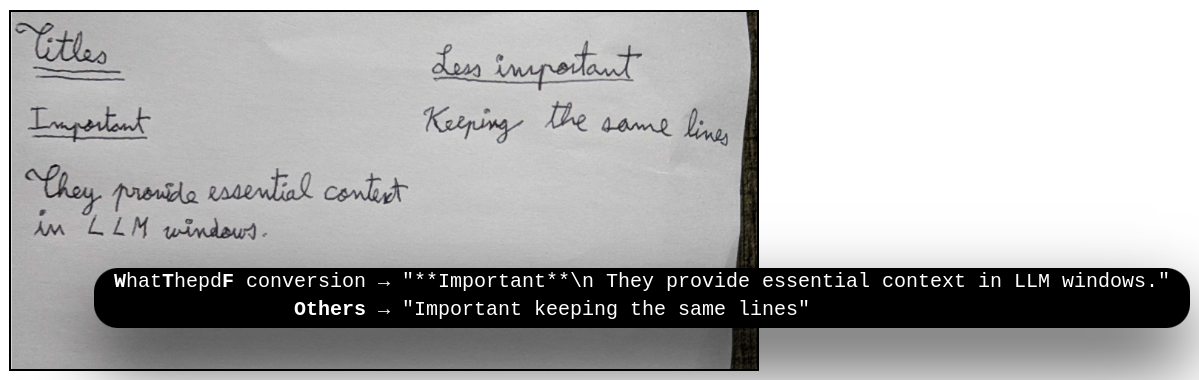 Titles
Important
They provide essential context
in LLM windows.
Less important
Keeping the same lines
WhatThepdF conversion → "**Important**\n They provide essential context in LLM windows."
Others → "Important keeping the same lines"